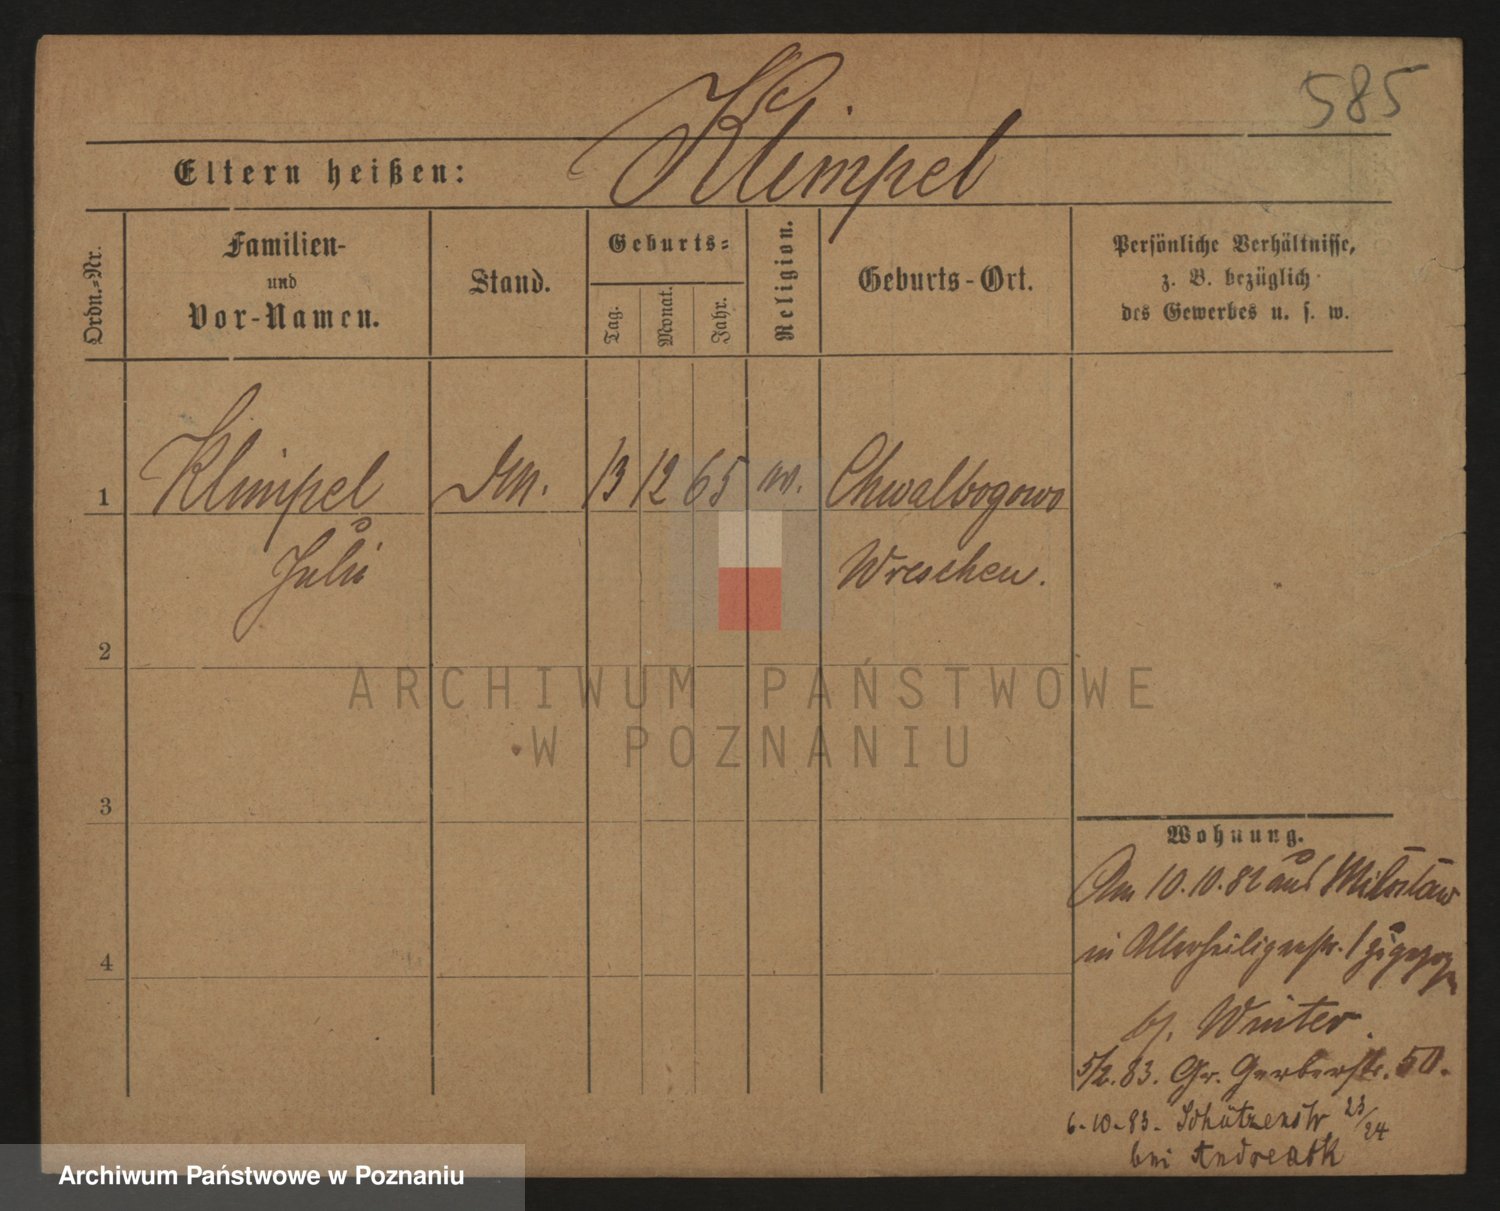 585
Klimpel
Eltern heißen:
Ordn.-Nr.
Familien-
und
Vor-Namen.
Stand.
Geburts-
Tag.
Monat.
Jahr.
Religion.
Geburts-Ort.
Persönliche Verhältnisse,
z. B. bezüglich
des Gewerbes u. s. w.
1
Klimpel
13 12 65
Chwalbogowo
Juli
Wreschen.
2
ARCHIWUM PAŃSTWOWE
W POZNANIU
3
4
Wohnung.
Am 10.10.82 aus Miloslaw
in Allerheiligenstr. 1 zugezogen
bj. Winter.
5/2. 83. Gr. Gerberstr. 50.
6.-10.-83. Schützenstr 23/24
bei
Archiwum Państwowe w Poznaniu